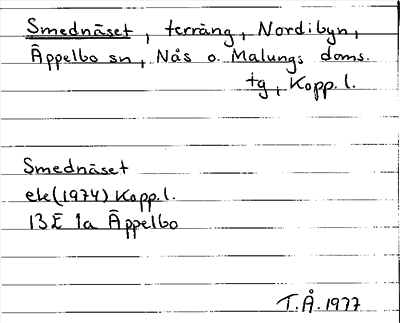 Smednäset, terräng, Nordibyn,
Äppelbo sn, Nås o. Malungs doms.
tg, Kopp. l.
Smednäset
ek (1974) Kopp. l.
13E 1a Äppelbo
T.Å. 1977